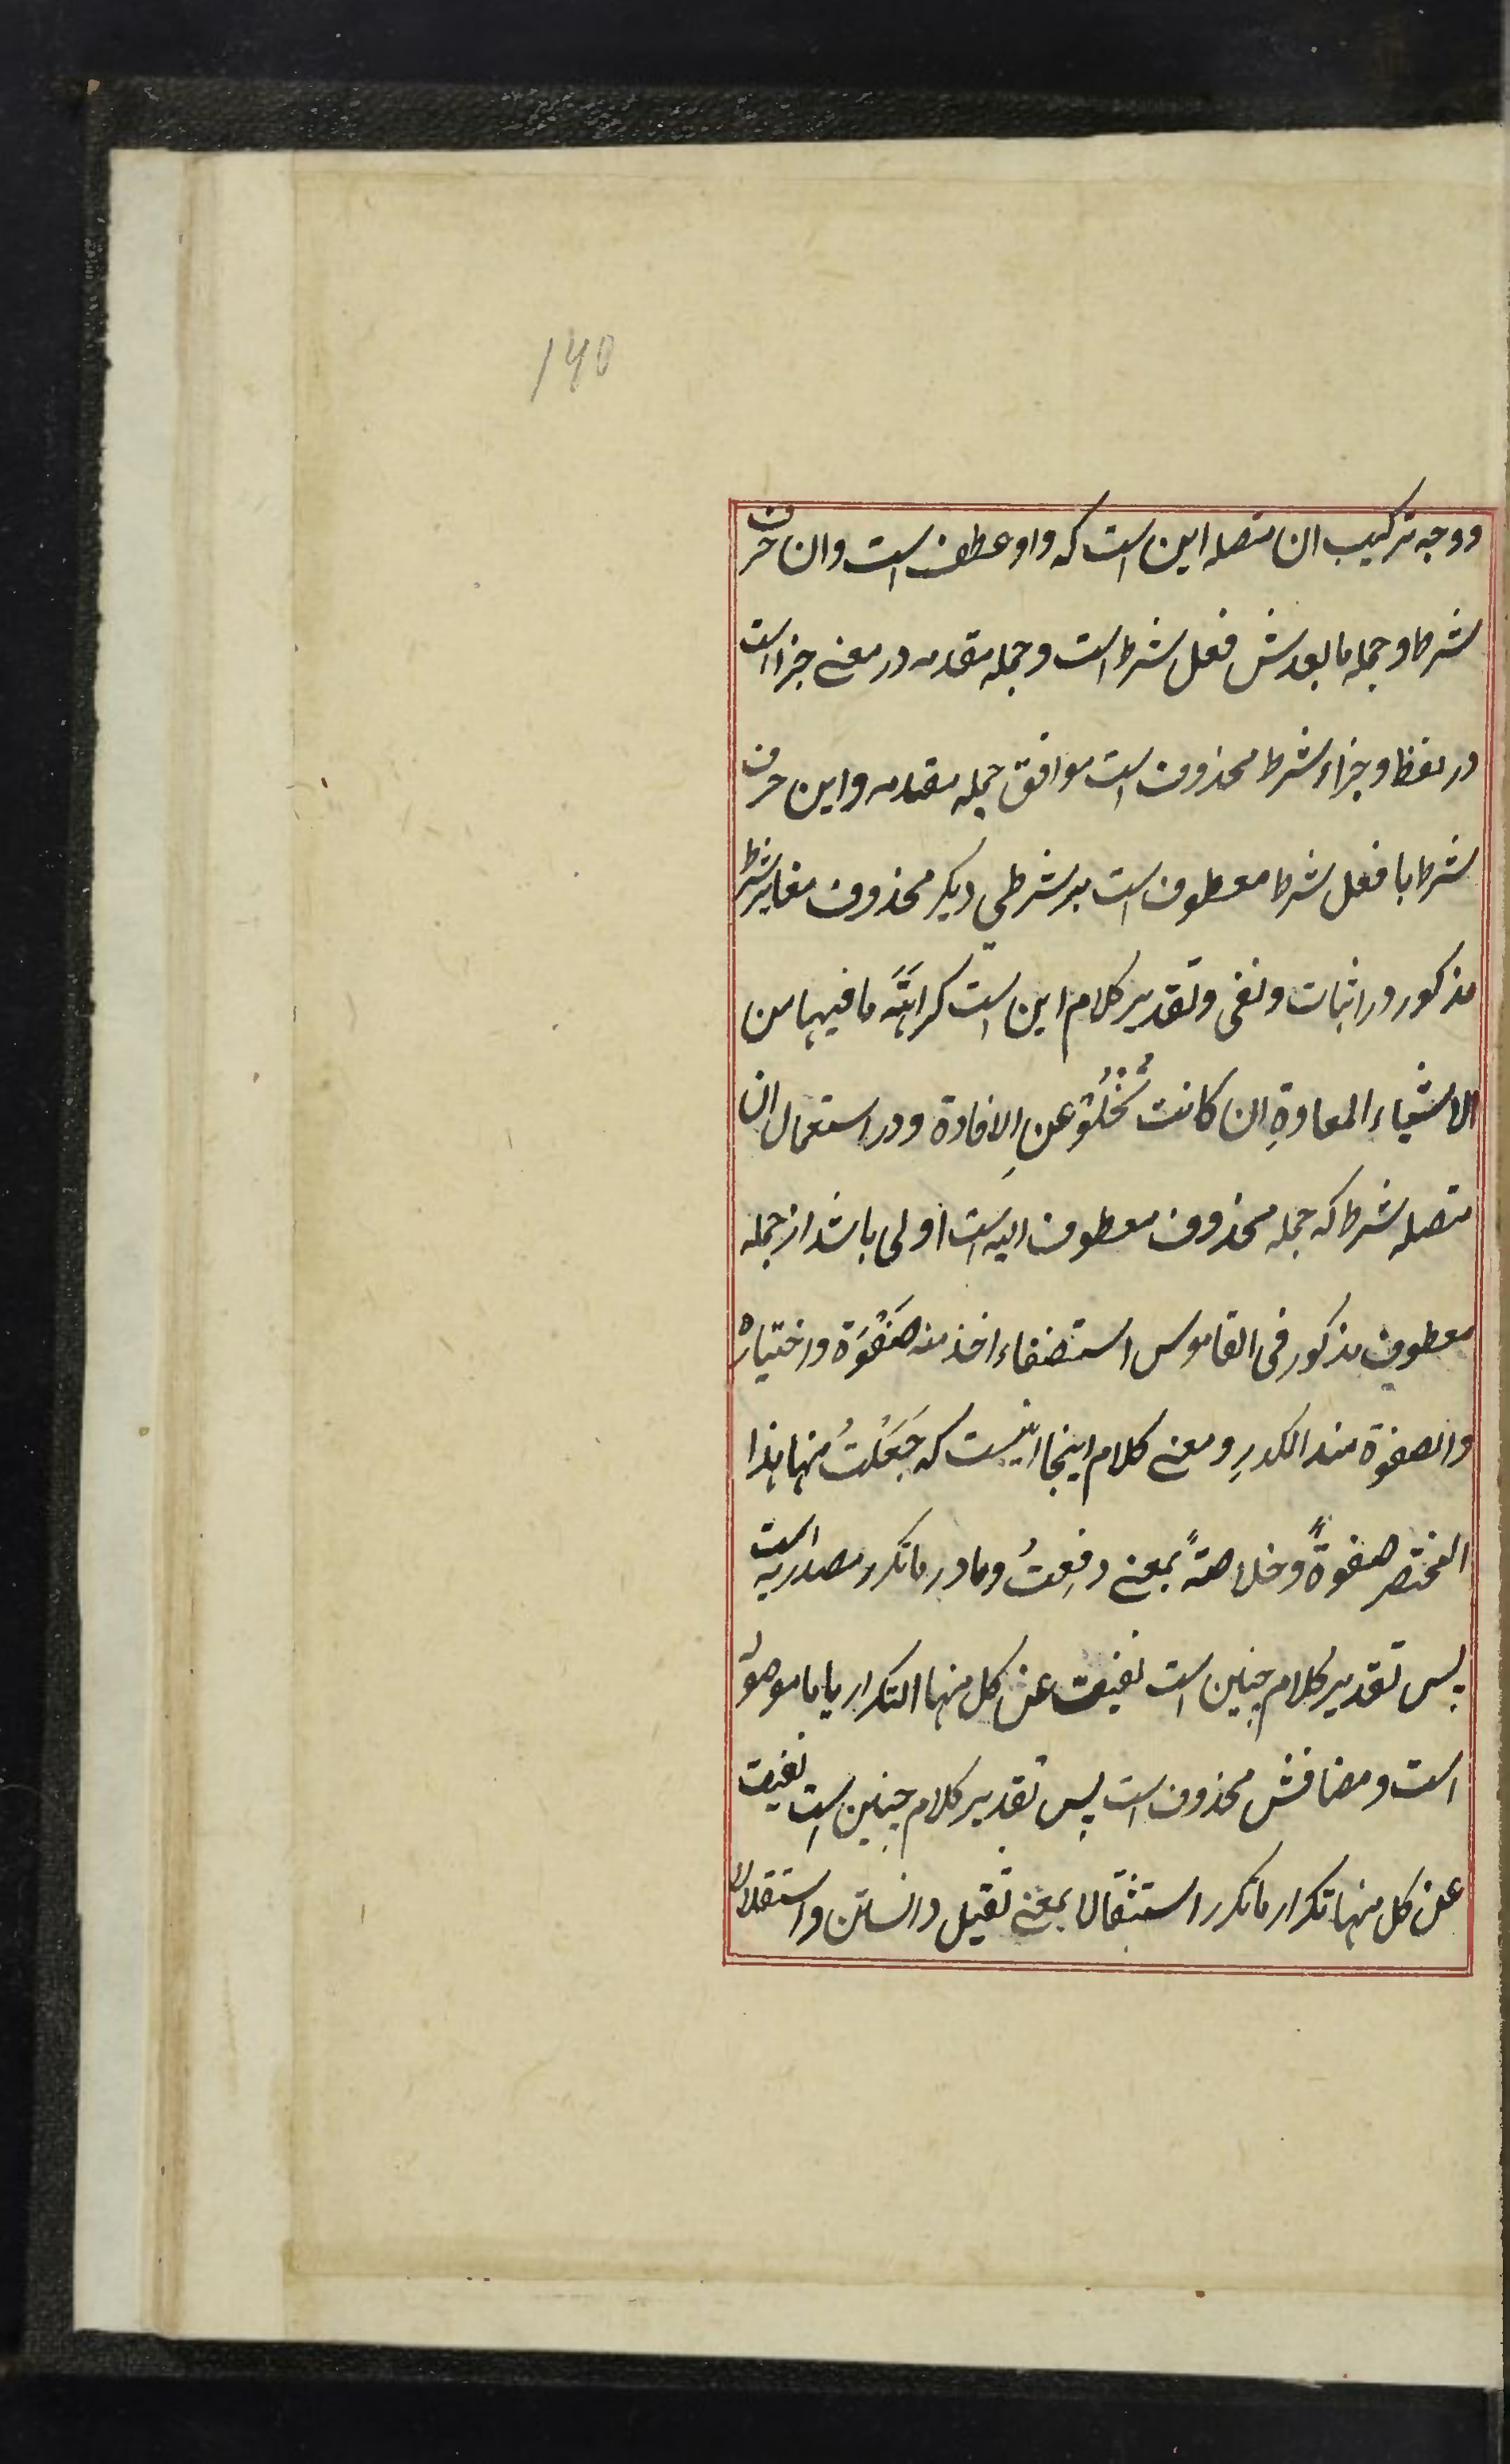 140
ووجه ترکیب ان متصله این است که واو عطف است وان حرف
شرط و جمله ما بعدش فعل شرط است و جمله مقدمه در معنے جزا است
در لفظ و جزاء شرط محذوف است موافق جمله مقدمه و این حرف
شرط با فعل شرط معطوف است بر شرطی دیگر محذوف مغایر شرط
مذکور در اثبات و نفی و تقدیر کلام این است کراهَةَ ما فیها من
الاشیاء المعادةِ ان کانت تَخْلُوْ عنِ الافادة و در استعمال ان
متصله شرط که جمله محذوف معطوف الیه است اولی باشد از جمله
معطوف مذکور فی القاموس استصفاء اخذ منه صَفْوَة و اختیارهْ
والصفوة ضد الکدرِ و معنے کلام اینجا اینست که جَعَلتُ منها هذا
المختصر صفوةً و خلاصةً بمعنے دفعتُ و ما در ما تکرر مصدریه است
پس تقدیر کلام چنین است نفیت عن کل منها التکرار یا ما موصوله
است و مضافش محذوف است پس تقدیر کلام چنین است نفیت
عن کل منها تکرار ما تکرر استثقالا بمعنے ثقیل دانستن و استقلال